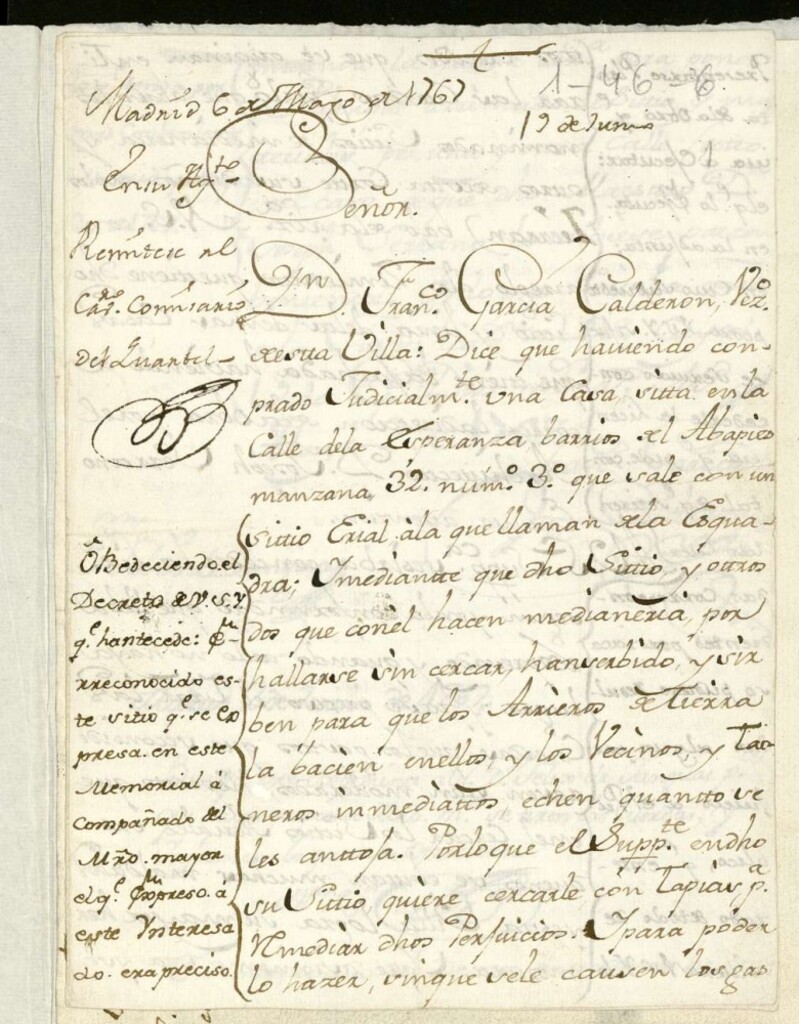 Madrid, 6 de Mayo de 1767
1-46-6.
19 de Junio
Señor.
Remitese al
Cavº. Comisario
del Quartel
Dn. Franco. Garcia Calderon, Vezº.
de estta Villa: Dice que haviendo con-
prado Judicialmte. una Casa, sitta en la
Calle dela Esperanza, barrios del Abapies
manzana, 32. numº. 3º. que sale con un
sittio Erial, àla que llaman dela Esqua-
dra; Imediantte que dho Sittio, y ottros
dos que conèl hacen medianeria, por
hallarse sin cercar, hanserbido, y sir
ben para que los Arrieros de tierra
la bacien en ellos, y los Vecinos, y
neros inmediattos, echen quantto se
les anttoja. Porloque el Suppte. endho
su Sittio, quiere cercarle con tapias pa.
Remediar dhos Perjuicios. Ipara poder
lo hazer, sinque sele causen los gas
Obedeciendo el
Decreto de V.S.Y
qe. hantecede:
rreconocido es-
te sitio qe. se Ex
presa. en este
Memorial à
compañado del
Mro. mayor
el qe. expreso. a
este Ynteresa
do. era preciso.